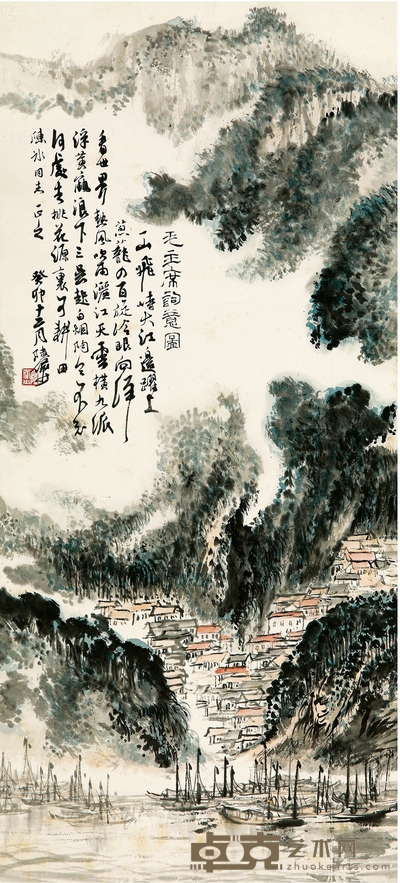 毛主席詞意圖
一山飛峙大江邊躍上
葱蘢四百旋冷眼向洋
看世界熱風吹雨灑江天雲横九派
浮黄鶴浪下三吴起白烟陶令不知
何處去桃花源裏可耕田
陳冰同志正之 癸卯十二月
卓克艺术网
zhuokearts.com